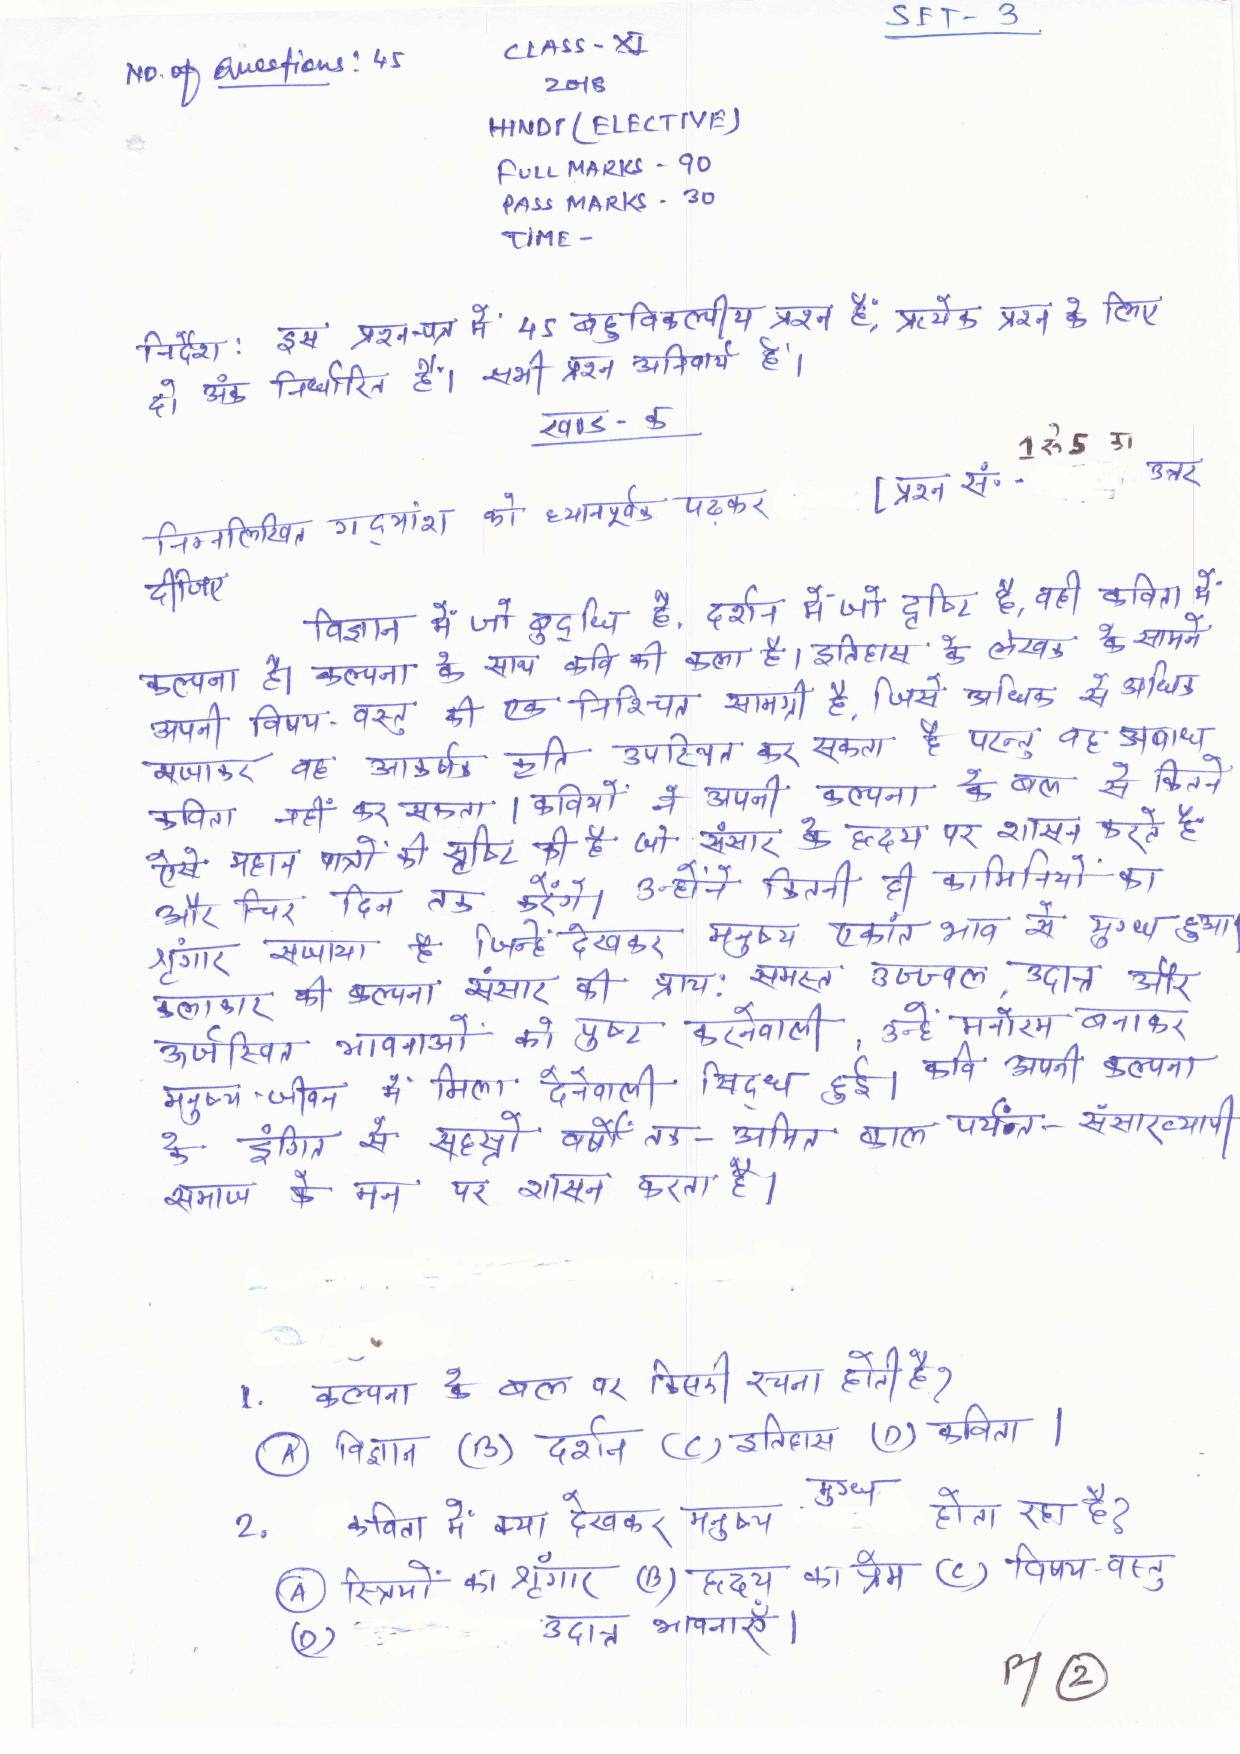 SET- 3
NO. of Questions: 45
CLASS - XI
2018
HINDI (ELECTIVE)
FULL MARKS - 90
PASS MARKS - 30
TIME -
निर्देश: इस प्रश्न-पत्र में 45 बहुविकल्पीय प्रश्न हैं, प्रत्येक प्रश्न के लिए
दो अंक निर्धारित हैं। सभी प्रश्न अनिवार्य हैं।
खण्ड - क
[प्रश्न सं. - 1 से 5 का उत्तर
निम्नलिखित गद्यांश को ध्यानपूर्वक पढ़कर
दीजिए
विज्ञान में जो बुद्धि है, दर्शन में जो दृष्टि है, वही कविता में
कल्पना है। कल्पना के साथ कवि की कला है। इतिहास के लेखक के सामने
अपनी विषय-वस्तु की एक निश्चित सामग्री है, जिसे अधिक से अधिक
सजाकर वह आकर्षक कृति उपस्थित कर सकता है परन्तु वह अबाध
कविता नहीं कर सकता। कवियों ने अपनी कल्पना के बल से कितने
ऐसे महान पात्रों की सृष्टि की है जो संसार के हृदय पर शासन करते हैं
और चिर दिन तक करेंगे। उन्होंने कितनी ही कामिनियों का
शृंगार सजाया है जिन्हें देखकर मनुष्य एकांत भाव से मुग्ध हुआ।
कलाकार की कल्पना संसार की प्राय: समस्त उज्ज्वल, उदात्त और
ऊर्जस्वित भावनाओं को पुष्ट करनेवाली, उन्हें मनोरम बनाकर
मनुष्य-जीवन में मिला देनेवाली सिद्ध हुई। कवि अपनी कल्पना
के इंगित से सहस्त्रों वर्षों तक - अमित काल पर्यंत - संसारव्यापी
समाज के मन पर शासन करता है।
1. कल्पना के बल पर किसकी रचना होती है?
(A) विज्ञान (B) दर्शन (C) इतिहास (D) कविता।
2. कविता में क्या देखकर मनुष्य मुग्ध होता रहा है?
(A) स्त्रियों का शृंगार (B) हृदय का प्रेम (C) विषय-वस्तु
(D) उदात्त भावनाएँ।
P/ 2